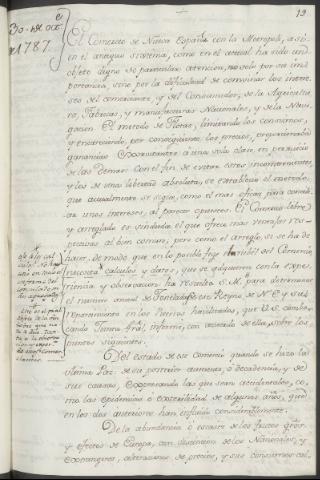 19
30. de Oct.e
de 1787.
El Comercio de Nueva España con la Metropoli, asi
en el antiguo sistema, como en el actual ha sido un
objeto digno de particular atencion, no solo por su im
portancia, sino por la dificultad de convinar los intere
ses del comerciante, y del Consumidor, de la Agricultu
ra, Fabricas, y manufacturas Nacionales, y de la Nave
gacion. El metodo de Flotas, limitando los consumos,
y encareciendo, por consiguiente, los precios, proporcionaba
ganancias exorbitantes á una sola clase, en perjuicio
de las demas. Con el fin de evitar estos inconvenientes,
y los de una libertad absoluta, se establecio el metodo,
que actualmente se sigue, como el mas eficaz para convi
nar unos intereses, al parecer opuestos. El Comercio libre
y arreglado es sin duda el que ofrece mas ventajas res-
pectivas al bien comun; pero como el arreglo, si se ha de
hacer, de modo que en lo posible fixe la del Comercio
necesita calculos y datos, que se adquieren con la expe-
riencia y observacion, ha resuelto S. M. para determinar
el numero anual de Toneladas en Reyno de N. E. y su
repartimiento en los Puertos havilitados, que V. S. combo-
cando Junta gral, informe, con acuerdo de ella, sobre los
puntos siguientes.
Del estado de ese comercio quando se hizo la
ultima Paz: de su posterior aumento, ó decadencia, y de
sus causas, expresando las que sean accidentales, co_
mo las epidemias, ó esterilidad de algunos años, que
en los dos anteriores han influido considerablemente.
De la abundancia, ó escasez de los frutos, generos
y efectos de Europa, con distincion de los Nacionales, y
Extrangeros, alteraciones de precios, y sus consumos cal_